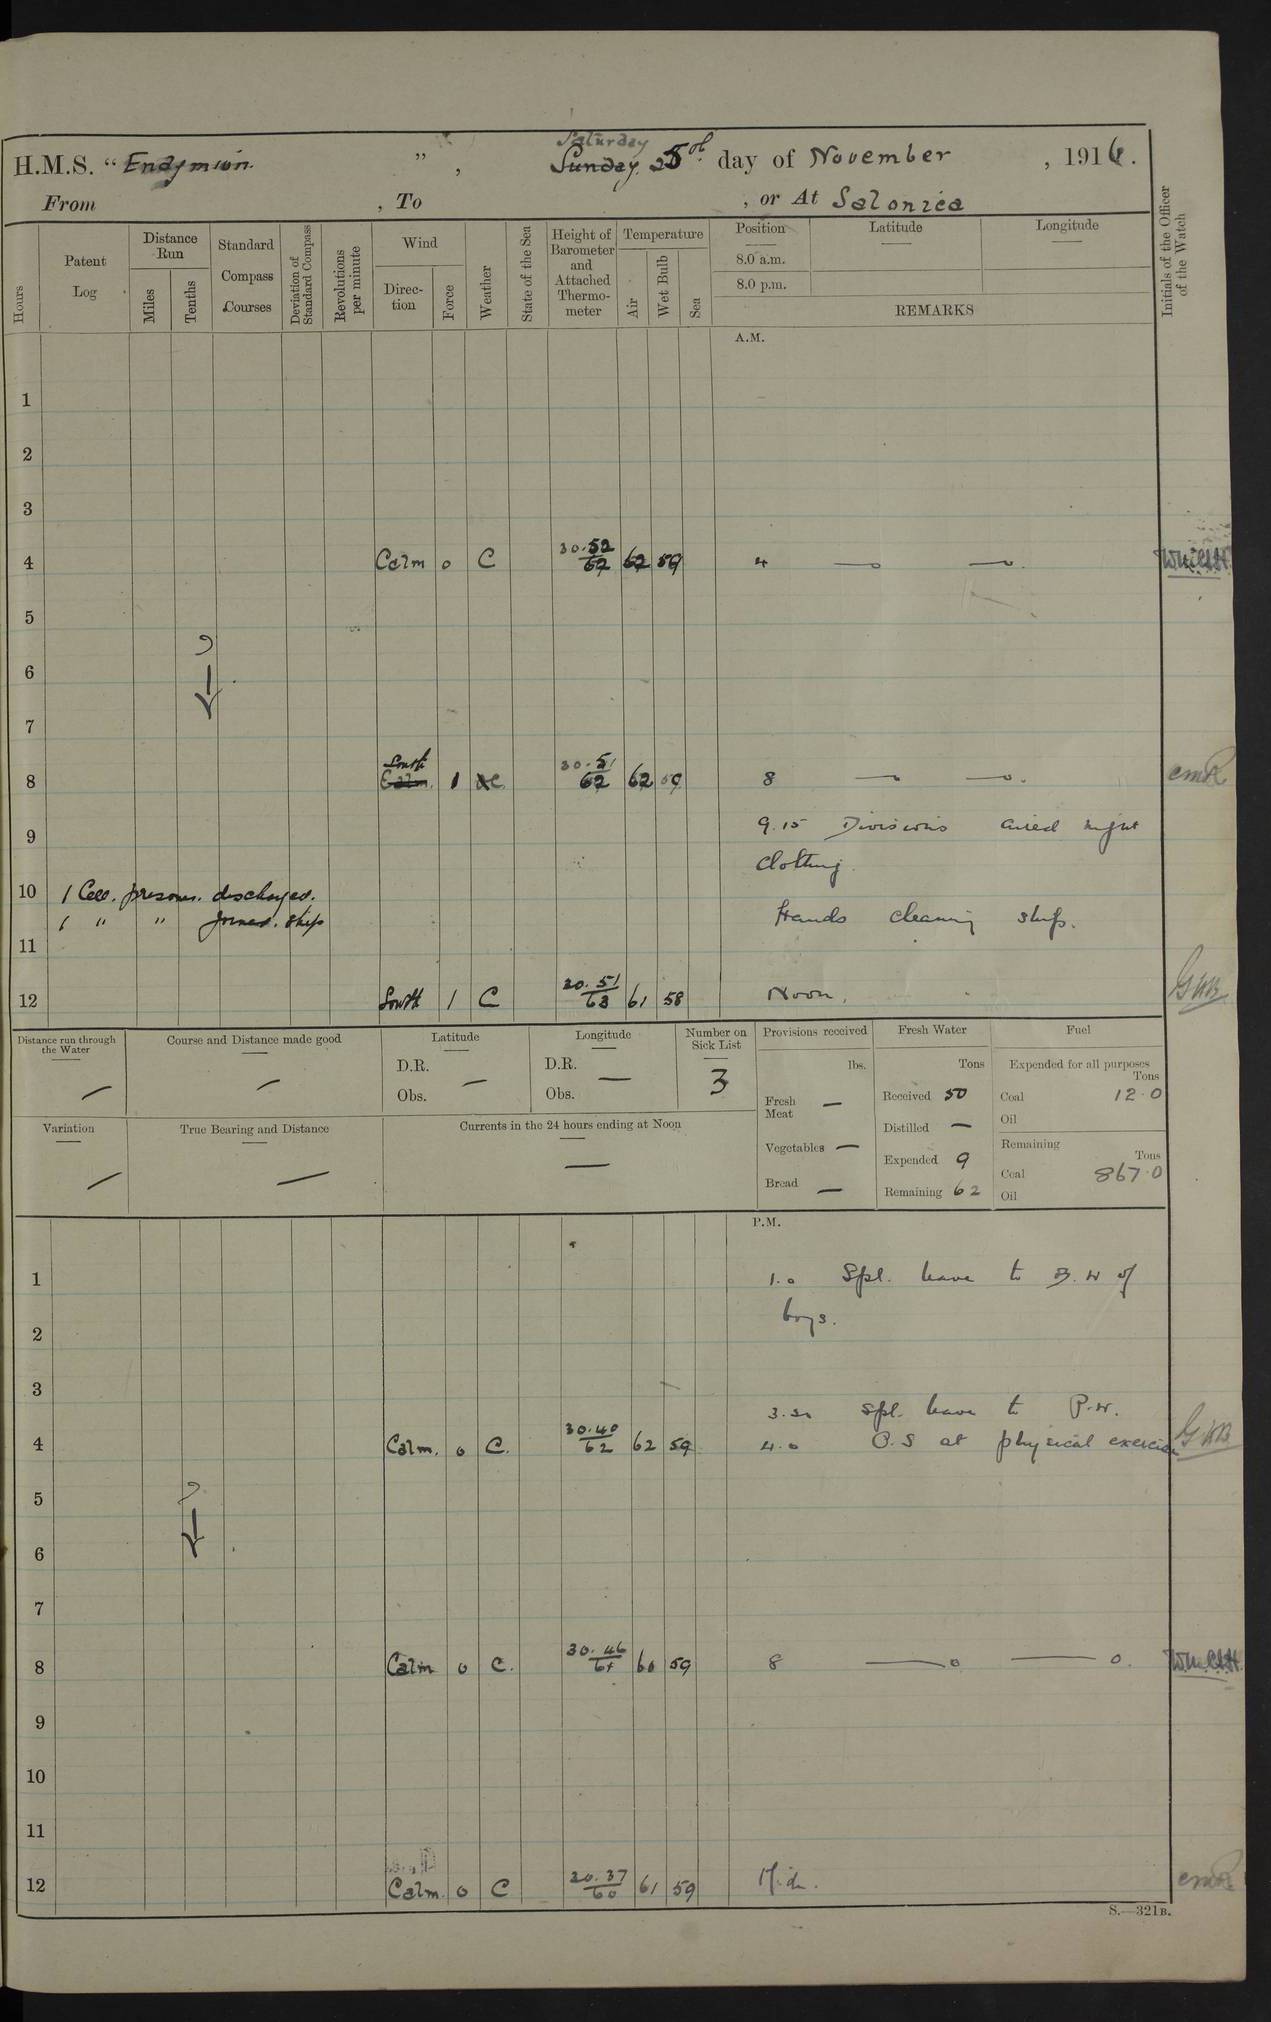 Saturday
H.M.S. "Endymion", Sunday 25th day of November, 1916.
From , To , or At Salonica
Hours
Patent Log
Distance Run
Miles
Tenths
Standard Compass Courses
Deviation of Standard Compass
Revolutions per minute
Wind
Direction
Force
Weather
State of the Sea
Height of Barometer and Attached Thermometer
Temperature
Air
Wet Bulb
Sea
Position
8.0 a.m.
8.0 p.m.
Latitude
Longitude
REMARKS
Initials of the Officer of the Watch
A.M.
1
2
3
4 Calm 0 C 30.52 62 62 59 4
5
6
7
South
8 Calm 1 C 30.51 62 62 59 8 CMR
9.15 Divisions aired night
9
clothing.
10 1 Cell. prisoner. discharged.
1 " " joined. ship Hands cleaning ship.
11
12 South 1 C 30.51 63 61 58 Noon.
Distance run through the Water
Course and Distance made good
Latitude
D.R.
Obs.
Longitude
D.R.
Obs.
Number on Sick List
3
Provisions received
lbs.
Fresh Meat —
Vegetables —
Bread —
Fresh Water
Tons
Received 50
Distilled —
Expended 9
Remaining 62
Fuel
Expended for all purposes
Tons
Coal 12.0
Oil
Remaining
Tons
Coal 867.0
Oil
Variation
True Bearing and Distance
Currents in the 24 hours ending at Noon
P.M.
1 1.0 Spl. leave to B.W of
boys.
2
3
3.30 Spl. leave to P.W.
4 Calm. 0 C. 30.40 62 62 59 4.0 O.S at physical exercise
5
6
7
8 Calm 0 C. 30.46 61 60 59 8
9
10
11
12 Calm. 0 C 30.37 60 61 59 Mid. CMR
S.—321B.